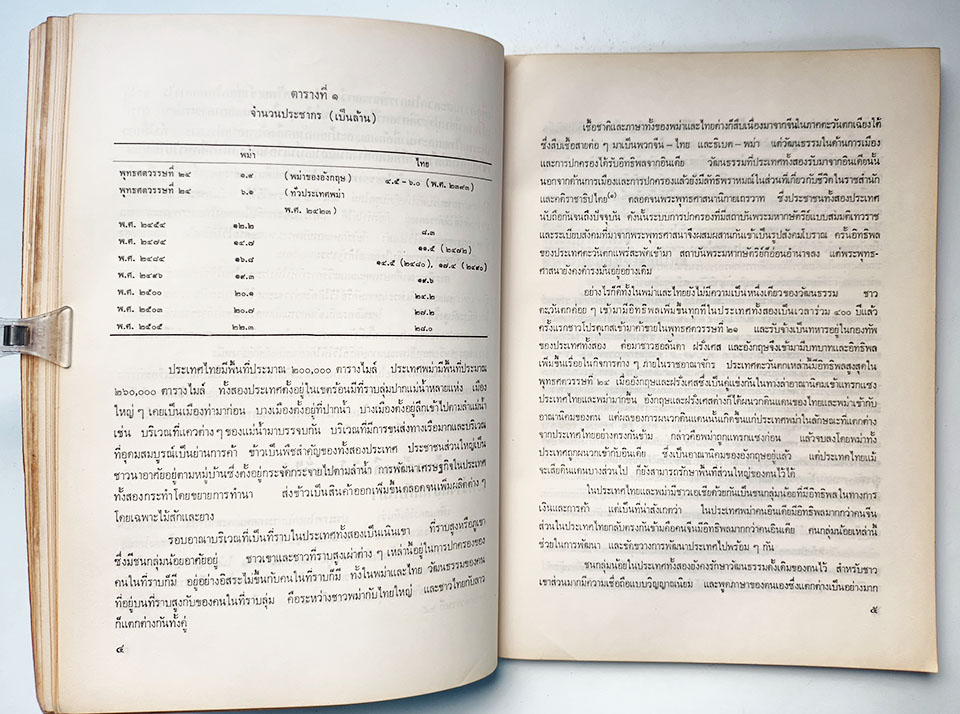 ตารางที่ ๑
จำนวนประชากร (เป็นล้าน)
พม่า ไทย
พุทธศตวรรษที่ ๒๔ ๑.๙ (พม่าของอังกฤษ) ๔.๕ - ๖.๐ (พ.ศ. ๒๓๙๓)
พุทธศตวรรษที่ ๒๔ ๖.๑ (ทั่วประเทศพม่า
พ.ศ. ๒๔๒๓)
พ.ศ. ๒๔๕๔ ๑๒.๒ ๘.๓
พ.ศ. ๒๔๗๔ ๑๔.๗ ๑๑.๕ (๒๔๗๒)
พ.ศ. ๒๔๘๔ ๑๖.๘ ๑๔.๕ (๒๔๘๐), ๑๗.๔ (๒๔๙๐)
พ.ศ. ๒๔๙๖ ๑๙.๓ ๑๙.๖
พ.ศ. ๒๕๐๐ ๒๐.๑ ๒๔.๒
พ.ศ. ๒๕๐๓ ๒๐.๗ ๒๗.๒
พ.ศ. ๒๕๐๕ ๒๒.๓ ๒๘.๐
ประเทศไทยมีพื้นที่ประมาณ ๒๐๐,๐๐๐ ตารางไมล์ ประเทศพม่ามีพื้นที่ประมาณ
๒๖๐,๐๐๐ ตารางไมล์ ทั้งสองประเทศตั้งอยู่ในเขตร้อนมีที่ราบลุ่มปากแม่น้ำหลายแห่ง เมือง
ใหญ่ ๆ เคยเป็นเมืองท่ามาก่อน บางเมืองตั้งอยู่ที่ปากน้ำ บางเมืองตั้งอยู่ลึกเข้าไปตามลำแม่น้ำ
เช่น บริเวณที่แควต่าง ๆ ของแม่น้ำมาบรรจบกัน บริเวณที่มีการขนส่งทางเรือมากและบริเวณ
ที่อุดมสมบูรณ์เป็นย่านการค้า ข้าวเป็นพืชสำคัญของทั้งสองประเทศ ประชาชนส่วนใหญ่เป็น
ชาวนาอาศัยอยู่ตามหมู่บ้านซึ่งตั้งอยู่กระจัดกระจายไปตามลำน้ำ การพัฒนาเศรษฐกิจในประเทศ
ทั้งสองกระทำโดยขยายการทำนา ส่งข้าวเป็นสินค้าออกเพิ่มขึ้นตลอดจนเพิ่มผลิตต่าง ๆ
โดยเฉพาะไม้สักและยาง
รอบอาณาบริเวณที่เป็นที่ราบในประเทศทั้งสองเป็นเนินเขา ที่ราบสูงหรือภูเขา
ซึ่งมีชนกลุ่มน้อยอาศัยอยู่ ชาวเขาและชาวที่ราบสูงเผ่าต่าง ๆ เหล่านี้อยู่ในการปกครองของ
คนในที่ราบก็มี อยู่อย่างอิสระไม่ขึ้นกับคนในที่ราบก็มี ทั้งในพม่าและไทย วัฒนธรรมของคน
ที่อยู่บนที่ราบสูงกับของคนในที่ราบลุ่ม คือระหว่างชาวพม่ากับไทยใหญ่ และชาวไทยกับลาว
ก็แตกต่างกันทั้งคู่
๔
เชื้อชาติและภาษาทั้งของพม่าและไทยต่างก็สืบเนื่องมาจากจีนในภาคตะวันตกเฉียงใต้
ซึ่งสืบเชื้อสายต่อ ๆ มาเป็นพวกจีน - ไทย และธิเบต - พม่า แต่วัฒนธรรมในด้านการเมือง
และการปกครองได้รับอิทธิพลจากอินเดีย วัฒนธรรมที่ประเทศทั้งสองรับมาจากอินเดียนั้น
นอกจากด้านการเมืองและการปกครองแล้วยังมีลัทธิพราหมณ์ในส่วนที่เกี่ยวกับชีวิตในราชสำนัก
และคติราชาธิปไตย(๑) ตลอดจนพระพุทธศาสนานิกายเถรวาท ซึ่งประเทศทั้งสอง
นับถือกันจนถึงปัจจุบัน ดังนั้นระบบการปกครองที่มีสถาบันพระมหากษัตริย์แบบสมมติเทวราช
และระเบียบสังคมที่มาจากพระพุทธศาสนาจึงผสมผสานกันเข้าเป็นรูปสังคมโบราณ ครั้นอิทธิพล
ของประเทศตะวันตกแพร่สะพัดเข้ามา สถาบันพระมหากษัตริย์ก็ย่อนอำนาจลง แต่พระพุทธ-
ศาสนายังคงดำรงมั่นอยู่อย่างเดิม
อย่างไรก็ดีทั้งในพม่าและไทยยังไม่มีความเป็นหนึ่งเดียวของวัฒนธรรม ชาว
ตะวันตกค่อย ๆ เข้ามามีอิทธิพลเพิ่มขึ้นทุกทีในประเทศทั้งสองเป็นเวลาร่วม ๔๐๐ ปีแล้ว
ครั้งแรกชาวโปรตุเกสเข้ามาค้าขายในพุทธศตวรรษที่ ๒๑ และรับจ้างเป็นทหารอยู่ในกองทัพ
ของประเทศทั้งสอง ต่อมาชาวฮอลันดา ฝรั่งเศส และอังกฤษจึงเข้ามามีบทบาทและอิทธิพล
เพิ่มขึ้นเรื่อยในกิจการต่าง ๆ ภายในราชอาณาจักร ประเทศตะวันตกเหล่านี้มีอิทธิพลสูงสุดใน
พุทธศตวรรษที่ ๒๔ เมื่ออังกฤษและฝรั่งเศสซึ่งเป็นคู่แข่งกันในทางล่าอาณานิคมเข้าแทรกแซง
ประเทศไทยและพม่ามากขึ้น อังกฤษและฝรั่งเศสต่างก็ได้ผนวกดินแดนของไทยและพม่าเข้ากับ
อาณานิคมของตน แต่ผลของการผนวกดินแดนนั้นเกิดขึ้นแก่ประเทศพม่าในลักษณะที่แตกต่าง
จากประเทศไทยอย่างตรงกันข้าม กล่าวคือพม่าถูกแทรกแซงก่อน แล้วจบลงโดยพม่าทั้ง
ประเทศถูกผนวกเข้ากับอินเดีย ซึ่งเป็นอาณานิคมของอังกฤษอยู่แล้ว แต่ประเทศไทยแม้
จะเสียดินแดนบางส่วนไป ก็ยังสามารถรักษาพื้นที่ส่วนใหญ่ของตนไว้ได้
ในประเทศไทยและพม่ามีชาวเอเชียด้วยกันเป็นชนกลุ่มน้อยที่มีอิทธิพลในทางการ
เงินและการค้า แต่เป็นที่น่าสังเกตว่า ในประเทศพม่าคนอินเดียมีอิทธิพลมากกว่าคนจีน
ส่วนในประเทศไทยกลับตรงกันข้ามคือคนจีนมีอิทธิพลมากกว่าคนอินเดีย คนกลุ่มน้อยเหล่านี้
ช่วยในการพัฒนา และขัดขวางการพัฒนาประเทศไปพร้อม ๆ กัน
ชนกลุ่มน้อยในประเทศทั้งสองยังคงรักษาวัฒนธรรมดั้งเดิมของตนไว้ สำหรับชาว
เขาส่วนมากมีความเชื่อถือแบบวิญญาณนิยม และพูดภาษาของตนเองซึ่งแตกต่างเป็นอย่างมาก
๕